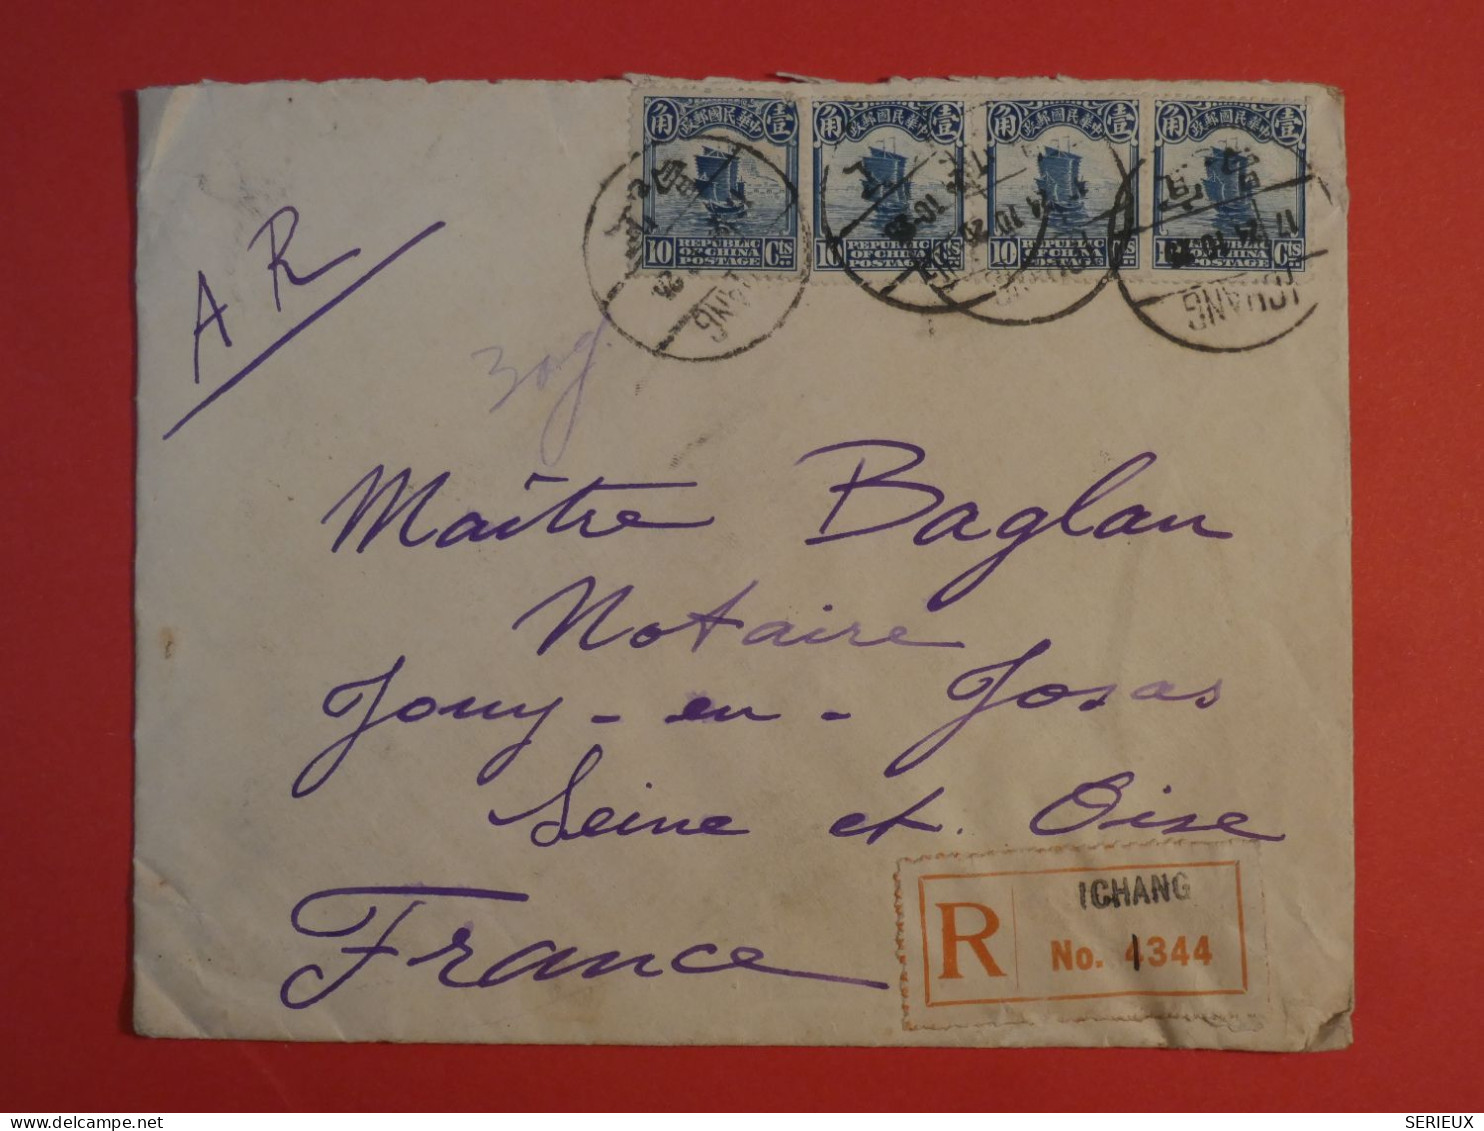 角 中華民國郵政 壹
10 REPUBLIC OF CHINA POSTAGE Cts
角 中華民國郵政 壹
10 REPUBLIC OF CHINA POSTAGE Cts
角 中華民國郵政 壹
10 REPUBLIC OF CHINA POSTAGE Cts
角 中華民國郵政 壹
REPUBLIC OF CHINA POSTAGE Cts
17 24 10 25
ICHANG
A R
Maître Baglan
Notaire
Jouy-en-Josas
Seine et Oise
France
R
ICHANG
No. 4344
delcampe.net
SERIEUX